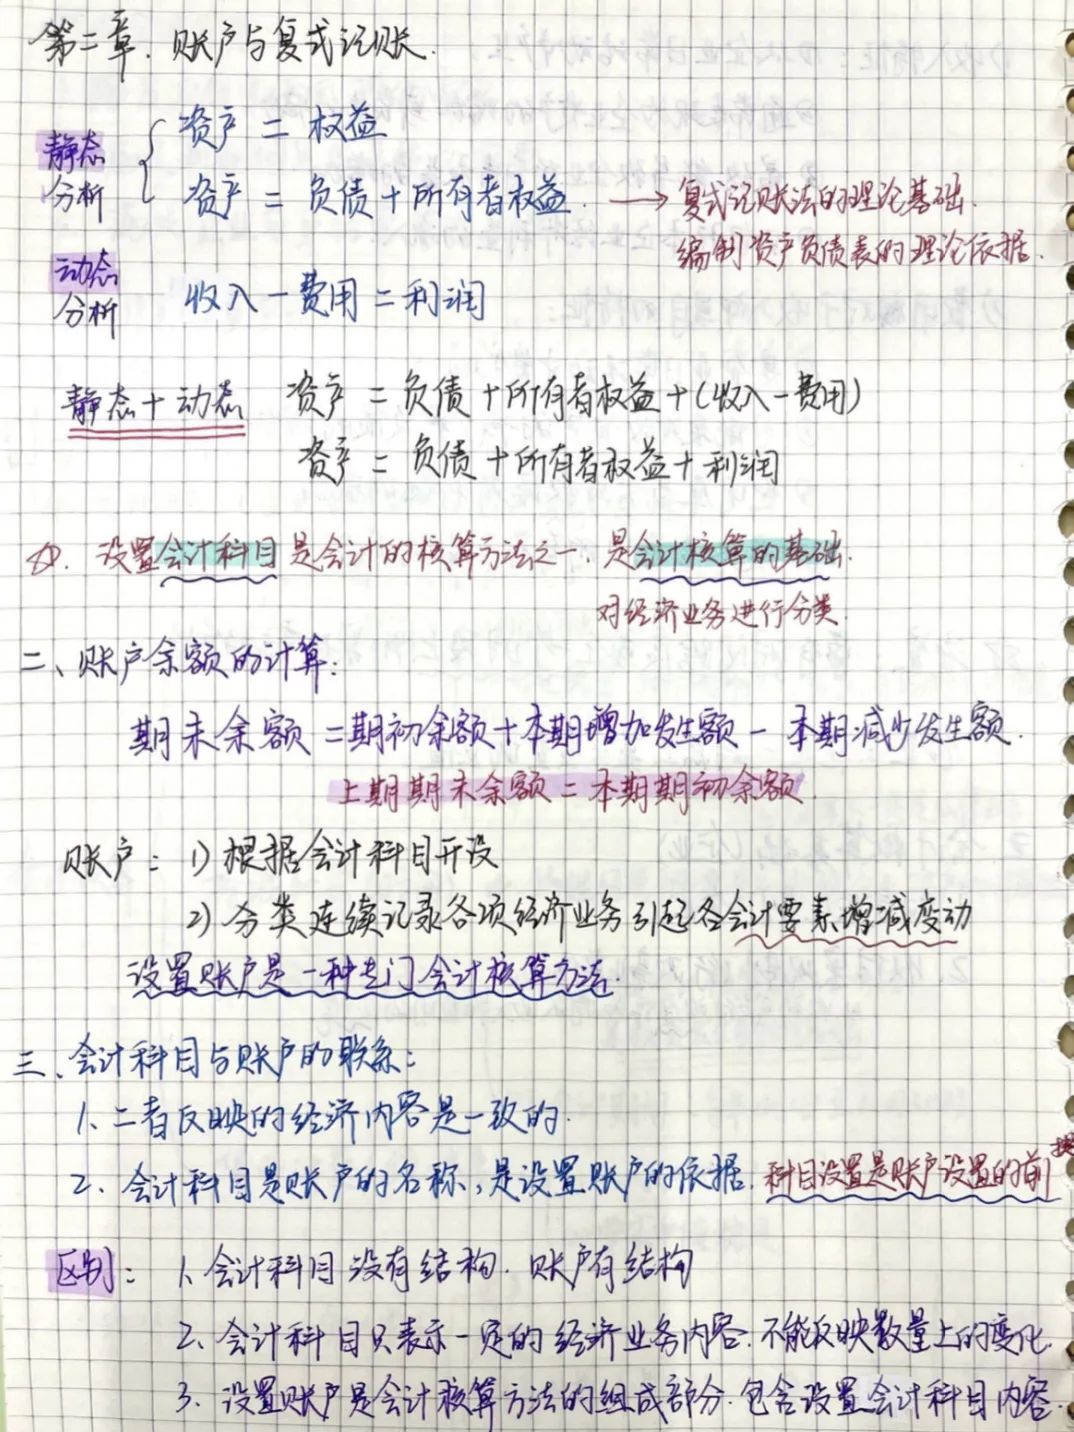 第二章. 账户与复式记账.
静态分析 { 资产 = 权益
资产 = 负债 + 所有者权益. → 复式记账法的理论基础.
编制资产负债表的理论依据.
动态分析 收入 - 费用 = 利润
静态 + 动态 资产 = 负债 + 所有者权益 + (收入 - 费用)
资产 = 负债 + 所有者权益 + 利润
设置会计科目是会计的核算方法之一. 是会计核算的基础.
对经济业务进行分类.
二、账户余额的计算:
期末余额 = 期初余额 + 本期增加发生额 - 本期减少发生额.
上期期末余额 = 本期期初余额.
账户: 1) 根据会计科目开设
2) 分类连续记录各项经济业务引起各会计要素增减变动
设置账户是一种专门会计核算方法.
三、会计科目与账户的联系:
1. 二者反映的经济内容是一致的.
2. 会计科目是账户的名称, 是设置账户的依据. 科目设置是账户设置的前提
区别: 1. 会计科目没有结构. 账户有结构
2. 会计科目只表示一定的经济业务内容. 不能反映数量上的变化.
3. 设置账户是会计核算方法的组成部分. 包含设置会计科目内容.